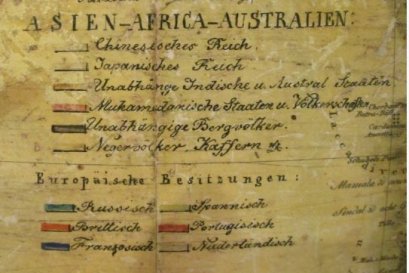 ASIEN–AFRICA–AUSTRALIEN:
Chinesisches Reich.
Iapanisches Reich
Unabhänge Indische u. Austral Staaten
Mukamedanische Staaten u. Völkerschaften
Unabhängige Bergvölker.
Negervölker, Kaffern
Europäische Besitzungen:
Russisch Spannisch
Brittisch Portugisisch
Französisch Niderländisch